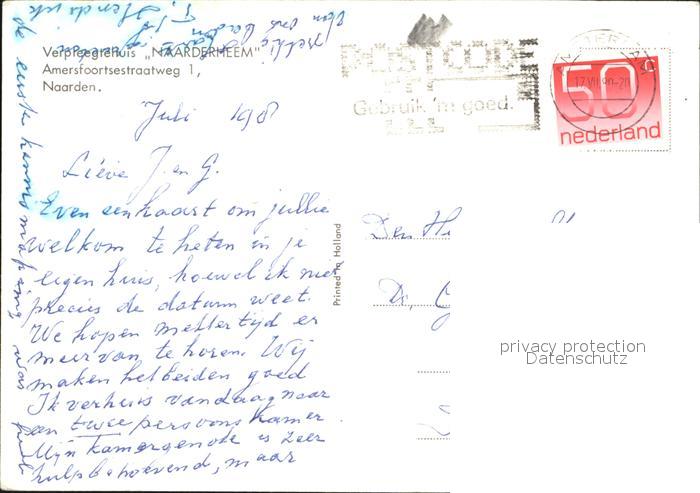 Verpleegtehuis „NAARDERHEEM"
Amersfoortsestraatweg 1,
Naarden.
POSTCODE
Gebruik 'm goed.
17.VII.80-20
50 c
nederland
Juli 198
Lieve J. en G.
Even een kaart om jullie
welkom te heten in je
eigen huis, hoewel ik niet
precies de datum weet.
We hopen mettertijd er
meer van te horen. Wij
maken het beiden goed
Ik verhuis vandaag naar
een twee persoons kamer
Mijn kamergenote is zeer
hulpbehoevend, maar
de eerste kennismaking was
Printed in Holland
Den H
privacy protection
Datenschutz